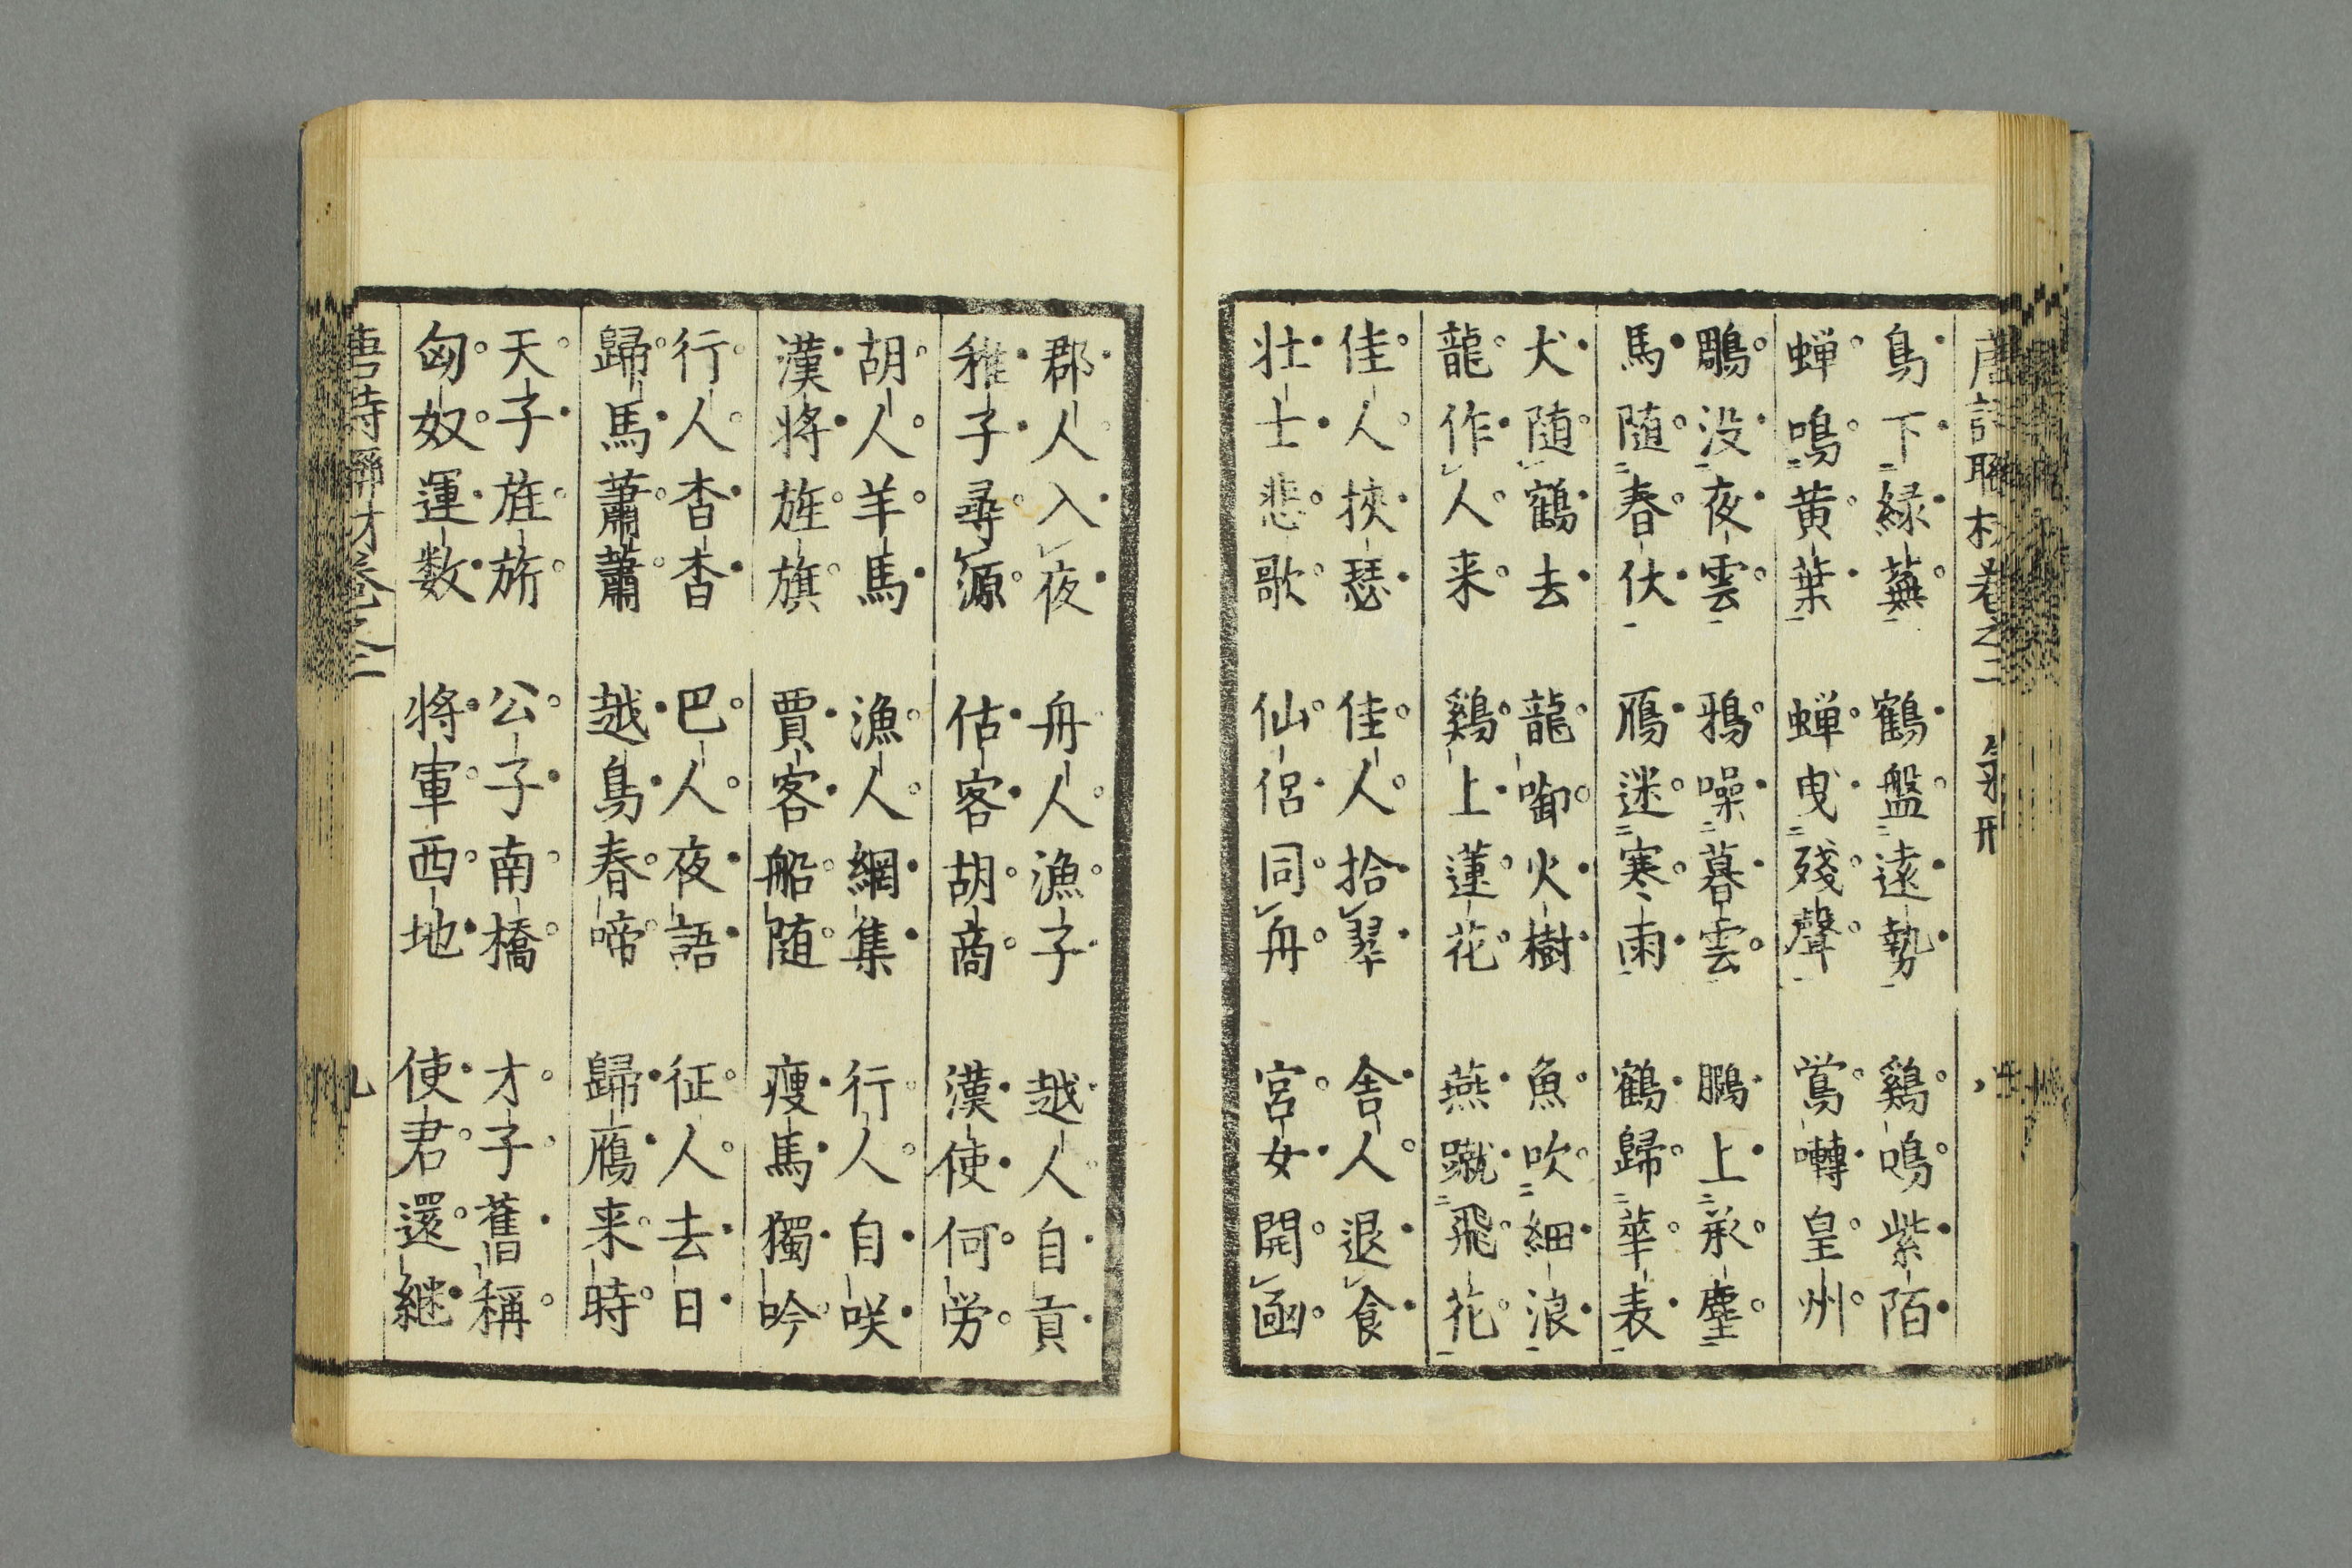 鳥下緑蕪 鶴盤遠勢 鷄鳴紫陌
蝉鳴黄葉 蝉曳殘聲 鴬囀皇州
鵰没夜雲 鴉噪暮雲 鵬上承塵
馬随春伏 鴈迷寒雨 鶴歸華表
犬随鶴去 龍啣火樹 魚吹細浪
龍作人来 鷄上蓮花 燕蹴飛花
佳人挾瑟 佳人拾翠 舍人退食
壮士悲歌 仙侶同舟 宮女開函
郡人入夜 舟人漁子 越人自貢
稚子尋源 估客胡商 漢使何労
胡人羊馬 漁人網集 行人自咲
漢将旌旗 賈客船随 痩馬獨吟
行人杳杳 巴人夜語 征人去日
歸馬蕭蕭 越鳥春啼 歸鴈来時
天子旌旂 公子南橋 才子舊稱
匈奴運数 将軍西地 使君還継
唐詩聯材卷之二 九